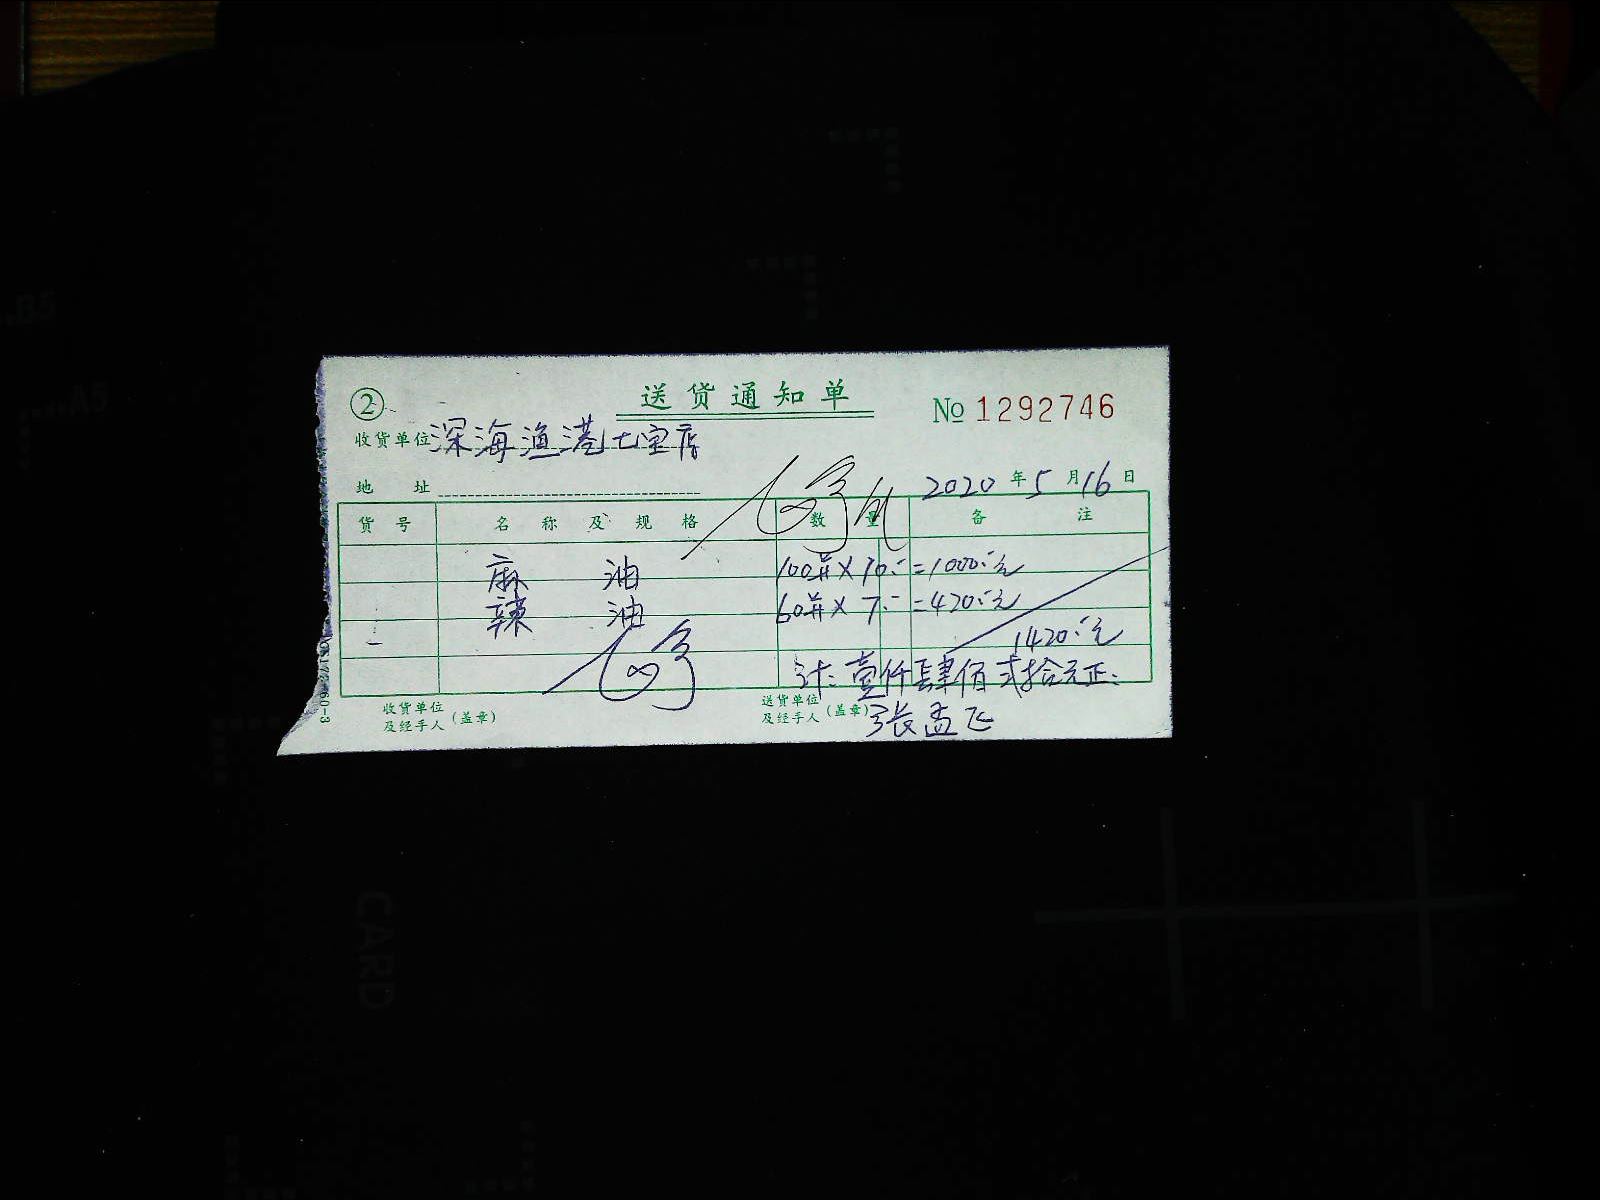 ② 送货通知单 № 1292746
收货单位 深海渔港七宝店
地 址 2020 年 5 月 16 日
货号 名称及规格 数量 备注
麻 油 100瓶 × 10 = 1000元
辣 油 60瓶 × 7 = 420元
1420元
计: 壹仟肆佰弍拾元正
收货单位及经手人(盖章) 送货单位及经手人(盖章) 张孟飞
B5
A5
CARD